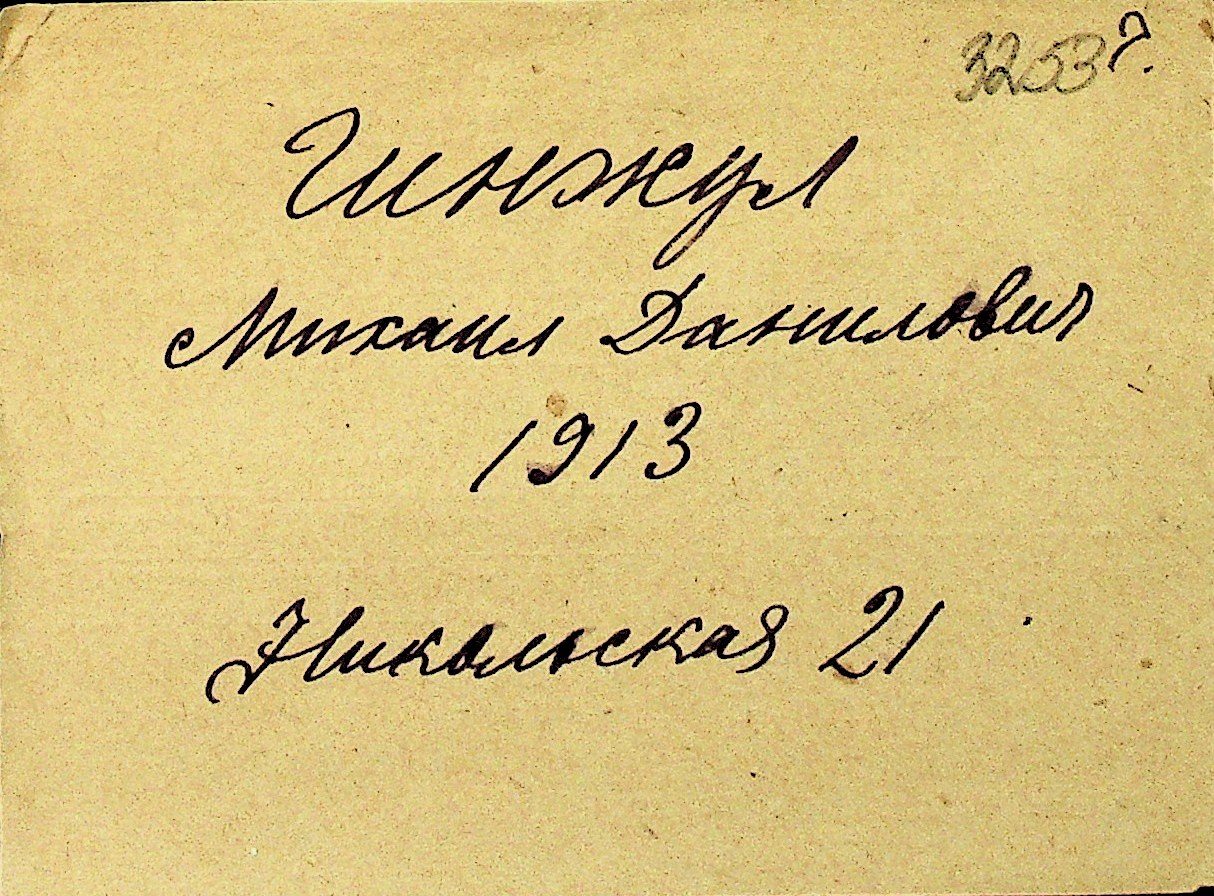 3253 г.
Гинжул
Михаил Данилович
1913
Никольская 21